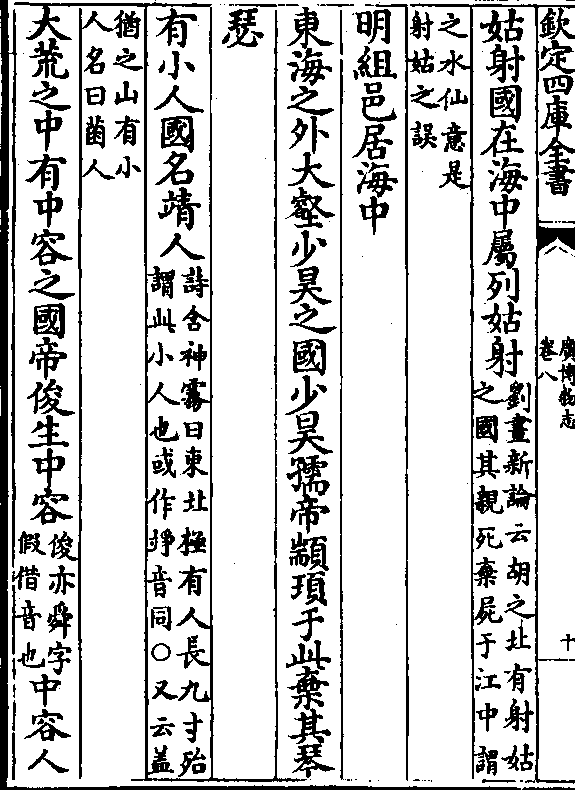 欽定四庫全書
廣博物志
卷八
十
姑射國在海中屬列姑射
劉晝新論云胡之北有射姑
之國其親死棄屍于江中謂
之水仙意是
射姑之誤
明組邑居海中
東海之外大壑少昊之國少昊孺帝顓頊于此棄其琴
瑟
有小人國名靖人
詩含神霧曰東北極有人長九寸殆
謂此小人也或作竫音同○又云蓋
猶之山有小
人名曰菌人
大荒之中有中容之國帝俊生中容
俊亦舜字
假借音也
中容人